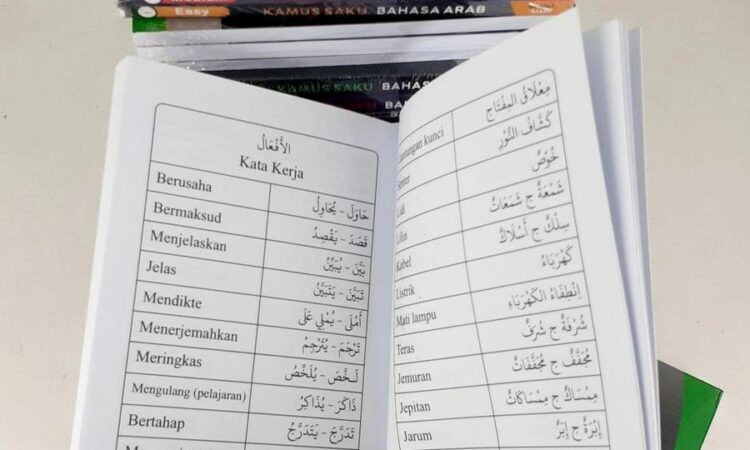 Easy KAMUS SAKU BAHASA ARAB
KAMUS SAKU BAHASA
BAHAS
الأَفْعَالُ
Kata Kerja
Berusaha حَاوَلَ - يُحَاوِلُ
Bermaksud قَصَدَ - يَقْصِدُ
Menjelaskan بَيَّنَ - يُبَيِّنُ
Jelas تَبَيَّنَ - يَتَبَيَّنُ
Mendikte أَمْلَى - يُمْلِي عَلَى
Menerjemahkan تَرْجَمَ - يُتَرْجِمُ
Meringkas لَخَّصَ - يُلَخِّصُ
Mengulang (pelajaran) ذَاكَرَ - يُذَاكِرُ
Bertahap تَدَرَّجَ - يَتَدَرَّجُ
kunci مِعْلَاقُ المِفْتَاحِ
Senter كَشَّافُ النُّوْرِ
Lidi خُوْصٌ
Lilin شَمْعَةٌ ج شَمَعَاتٌ
Kabel سِلْكٌ ج أَسْلَاكٌ
Listrik كَهْرَبَاءُ
Mati lampu اِنْطِفَاءُ الكَهْرَبَاءِ
Teras شُرْفَةٌ ج شُرَفٌ
Jemuran مُجَفَّفٌ ج مُجَفَّفَاتٌ
Jepitan مِمْسَاكٌ ج مِمْسَاكَاتٌ
Jarum إِبْرَةٌ ج إِبَرٌ